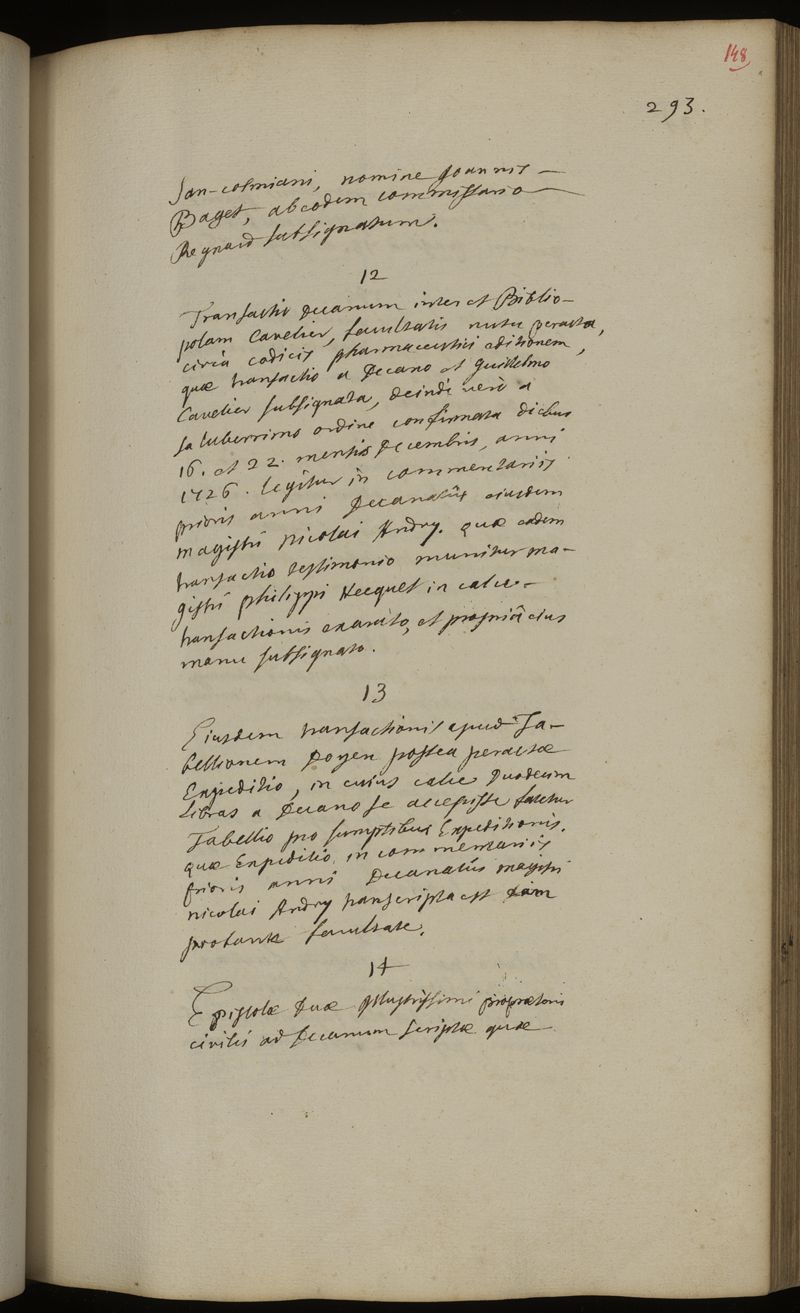 148
293.
San-cosmiani, nomine Joannis
Baget, ab eodem commissario
Regnard subsignatum.
12
Transactio Decanum inter et Biblio-
polam Cavelier, facultatis nutu peracta,
circa codicis pharmaceutici editionem,
quæ transactio a Decano et Guillelmo
Cavelier subsignata, deinde verò a
saluberrimo ordine confirmata diebus
16. et 22. mensis Decembris, anni
1726. legitur in commentariis
prioris anni Decanatûs eiusdem
magistri Nicolai Andry. quæ eadem
transactio testimonio munitur ma-
gistri philippi Hecquet in calce
transactionis exarato, et propriâ eius
manu subsignato.
13
Eiusdem transactionis apud Ta-
bellionem Doyen postea peractæ
Expeditio, in cuius calce Duodecim
libras a Decano se accepisse fatetur
Tabellio pro sumptibus Expeditionis.
quæ Expeditio, in commentariis
prioris anni Decanatûs magistri
nicolai Andry transcripta est
probante facultate.
14
Epistolæ Duæ Illustrissimi proprætoris
civilis ad Decanum scriptæ quæ